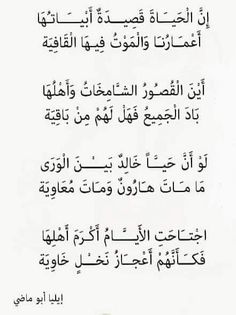 إِنَّ الْحَيَاةَ قَصِيدَةٌ أَبْيَاتُهَا
أَعْمَارُنَا وَالْمَوْتُ فِيهَا الْقَافِيَة
أَيْنَ الْقُصُورُ الشَّامِخَاتُ وَأَهْلُهَا
بَادَ الْجَمِيعُ فَهَلْ لَهُمْ مِنْ بَاقِيَة
لَوْ أَنَّ حَيَّاً خَالِدٌ بَيْنَ الْوَرَى
مَا مَاتَ هَارُونٌ وَمَاتَ مُعَاوِيَة
اجْتَاحَتِ الأَيَّامُ أَكْرَمَ أَهْلِهَا
فَكَأَنَّهُمْ أَعْجَازُ نَخْلٍ خَاوِيَة
إيليا أبو ماضي